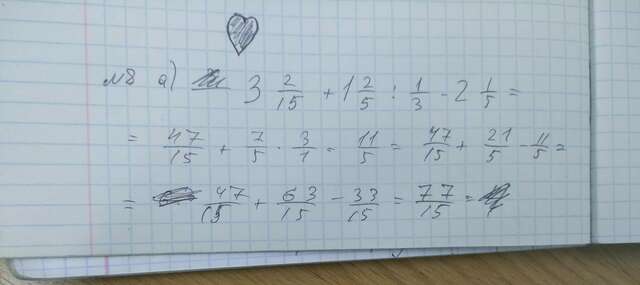 №8 а) 3 2/15 + 1 2/5 : 1/3 - 2 1/5 =
= 47/15 + 7/5 · 3/1 - 11/5 = 47/15 + 21/5 - 11/5 =
= 47/15 + 63/15 - 33/15 = 77/15 =